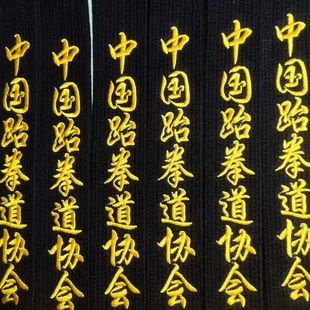 中国跆拳道协会
中国跆拳道协会
中国跆拳道协会
中国跆拳道协会
中国跆拳道协会
中国跆拳道协会